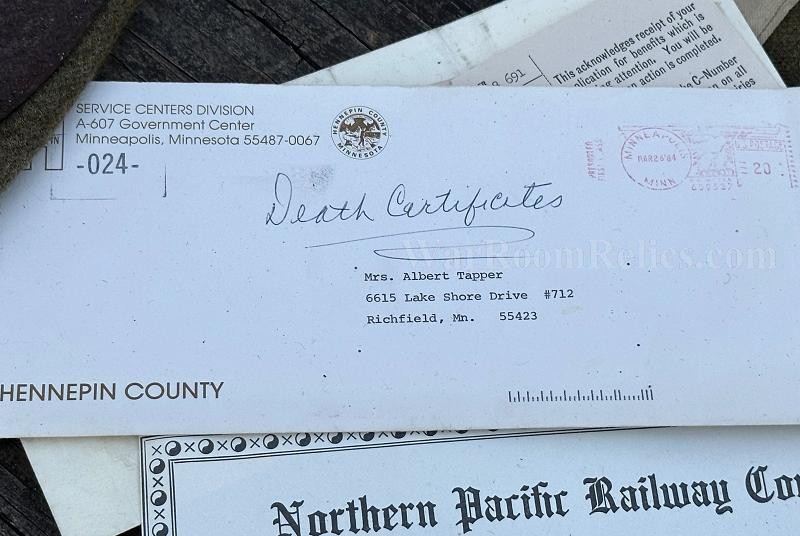 This acknowledges receipt of your
plication for benefits which is
ing attention. You will be
n action is completed.
e C-Number
on on all
691
SERVICE CENTERS DIVISION
A-607 Government Center
Minneapolis, Minnesota 55487-0067
-024-
HENNEPIN COUNTY
MINNESOTA
MINNEAPOLIS
MAR26'84
MINN
U.S. POSTAGE
20
Death Cartificates
WarRoomRelics.com
Mrs. Albert Tapper
6615 Lake Shore Drive #712
Richfield, Mn. 55423
HENNEPIN COUNTY
Northern Pacific Railway Co